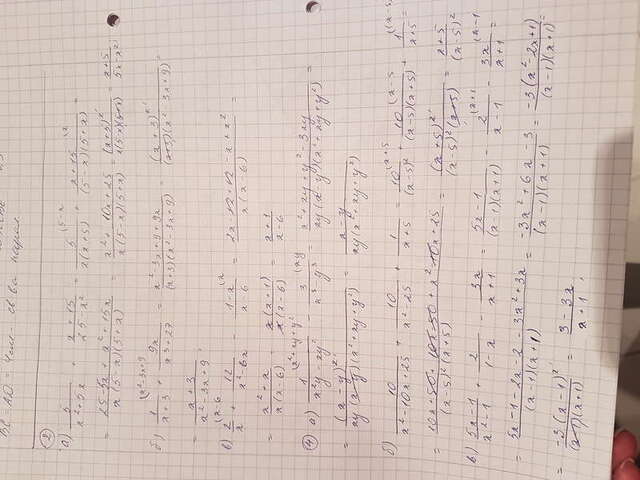 BC = AD = 4см - св-ва парал.
②
а) 5/(x²+5x) + (x+15)/(25-x²) = 5/(x(x+5)) (5-x + (x+15)/((5-x)(5+x)) (x =
= (25-5x+x²+15x)/(x(5-x)(5+x)) = (x²+10x+25)/(x(5-x)(5+x)) = (x+5)²/(x(5-x)(5+x)) = (x+5)/(5x-x²)
б) 1/(x+3) (x²-3x+9 + 9x/(x³+27) = (x²-3x+9+9x)/((x+3)(x²-3x+9)) = (x+3)²/((x+3)(x²-3x+9)) =
= (x+3)/(x²-3x+9);
в) 2/x (x-6 + 12/(x²-6x) - (1-x)/(x-6) (x = (2x-12+12-x+x²)/(x(x-6)) =
= (x²+x)/(x(x-6)) = x(x+1)/(x(x-6)) = (x+1)/(x-6)
④ а) 1/(x²y-xy²) (x²+xy+y² - 3/(x³-y³) (xy = (x²+xy+y²-3xy)/(xy(x-y)(x²+xy+y²)) =
= (x-y)²/(xy(x-y)(x²+xy+y²)) = (x-y)/(xy(x²+xy+y²))
б) 10/(x²-10x+25) + 10/(x²-25) + 1/(x+5) = 10/(x-5)² (x+5 + 10/((x-5)(x+5)) (x-5 + 1/(x+5) =
= (10x+50+10x-50+x²-10x+25)/((x-5)²(x+5)) = (x+5)²/((x-5)²(x+5)) = (x+5)/(x-5)²
в) (5x-1)/(x²-1) + 2/(1-x) - 3x/(x+1) = (5x-1)/((x-1)(x+1)) - 2/(x-1) (x+1 - 3x/(x+1) (x-1 =
= (5x-1-2x-2-3x²+3x)/((x-1)(x+1)) = (-3x²+6x-3)/((x-1)(x+1)) = -3(x²-2x+1)/((x-1)(x+1)) =
= -3(x-1)²/((x-1)(x+1)) = (3-3x)/(x+1);